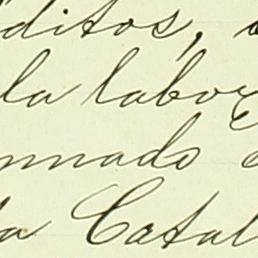 ditos,
la labor
nnado
la Catal